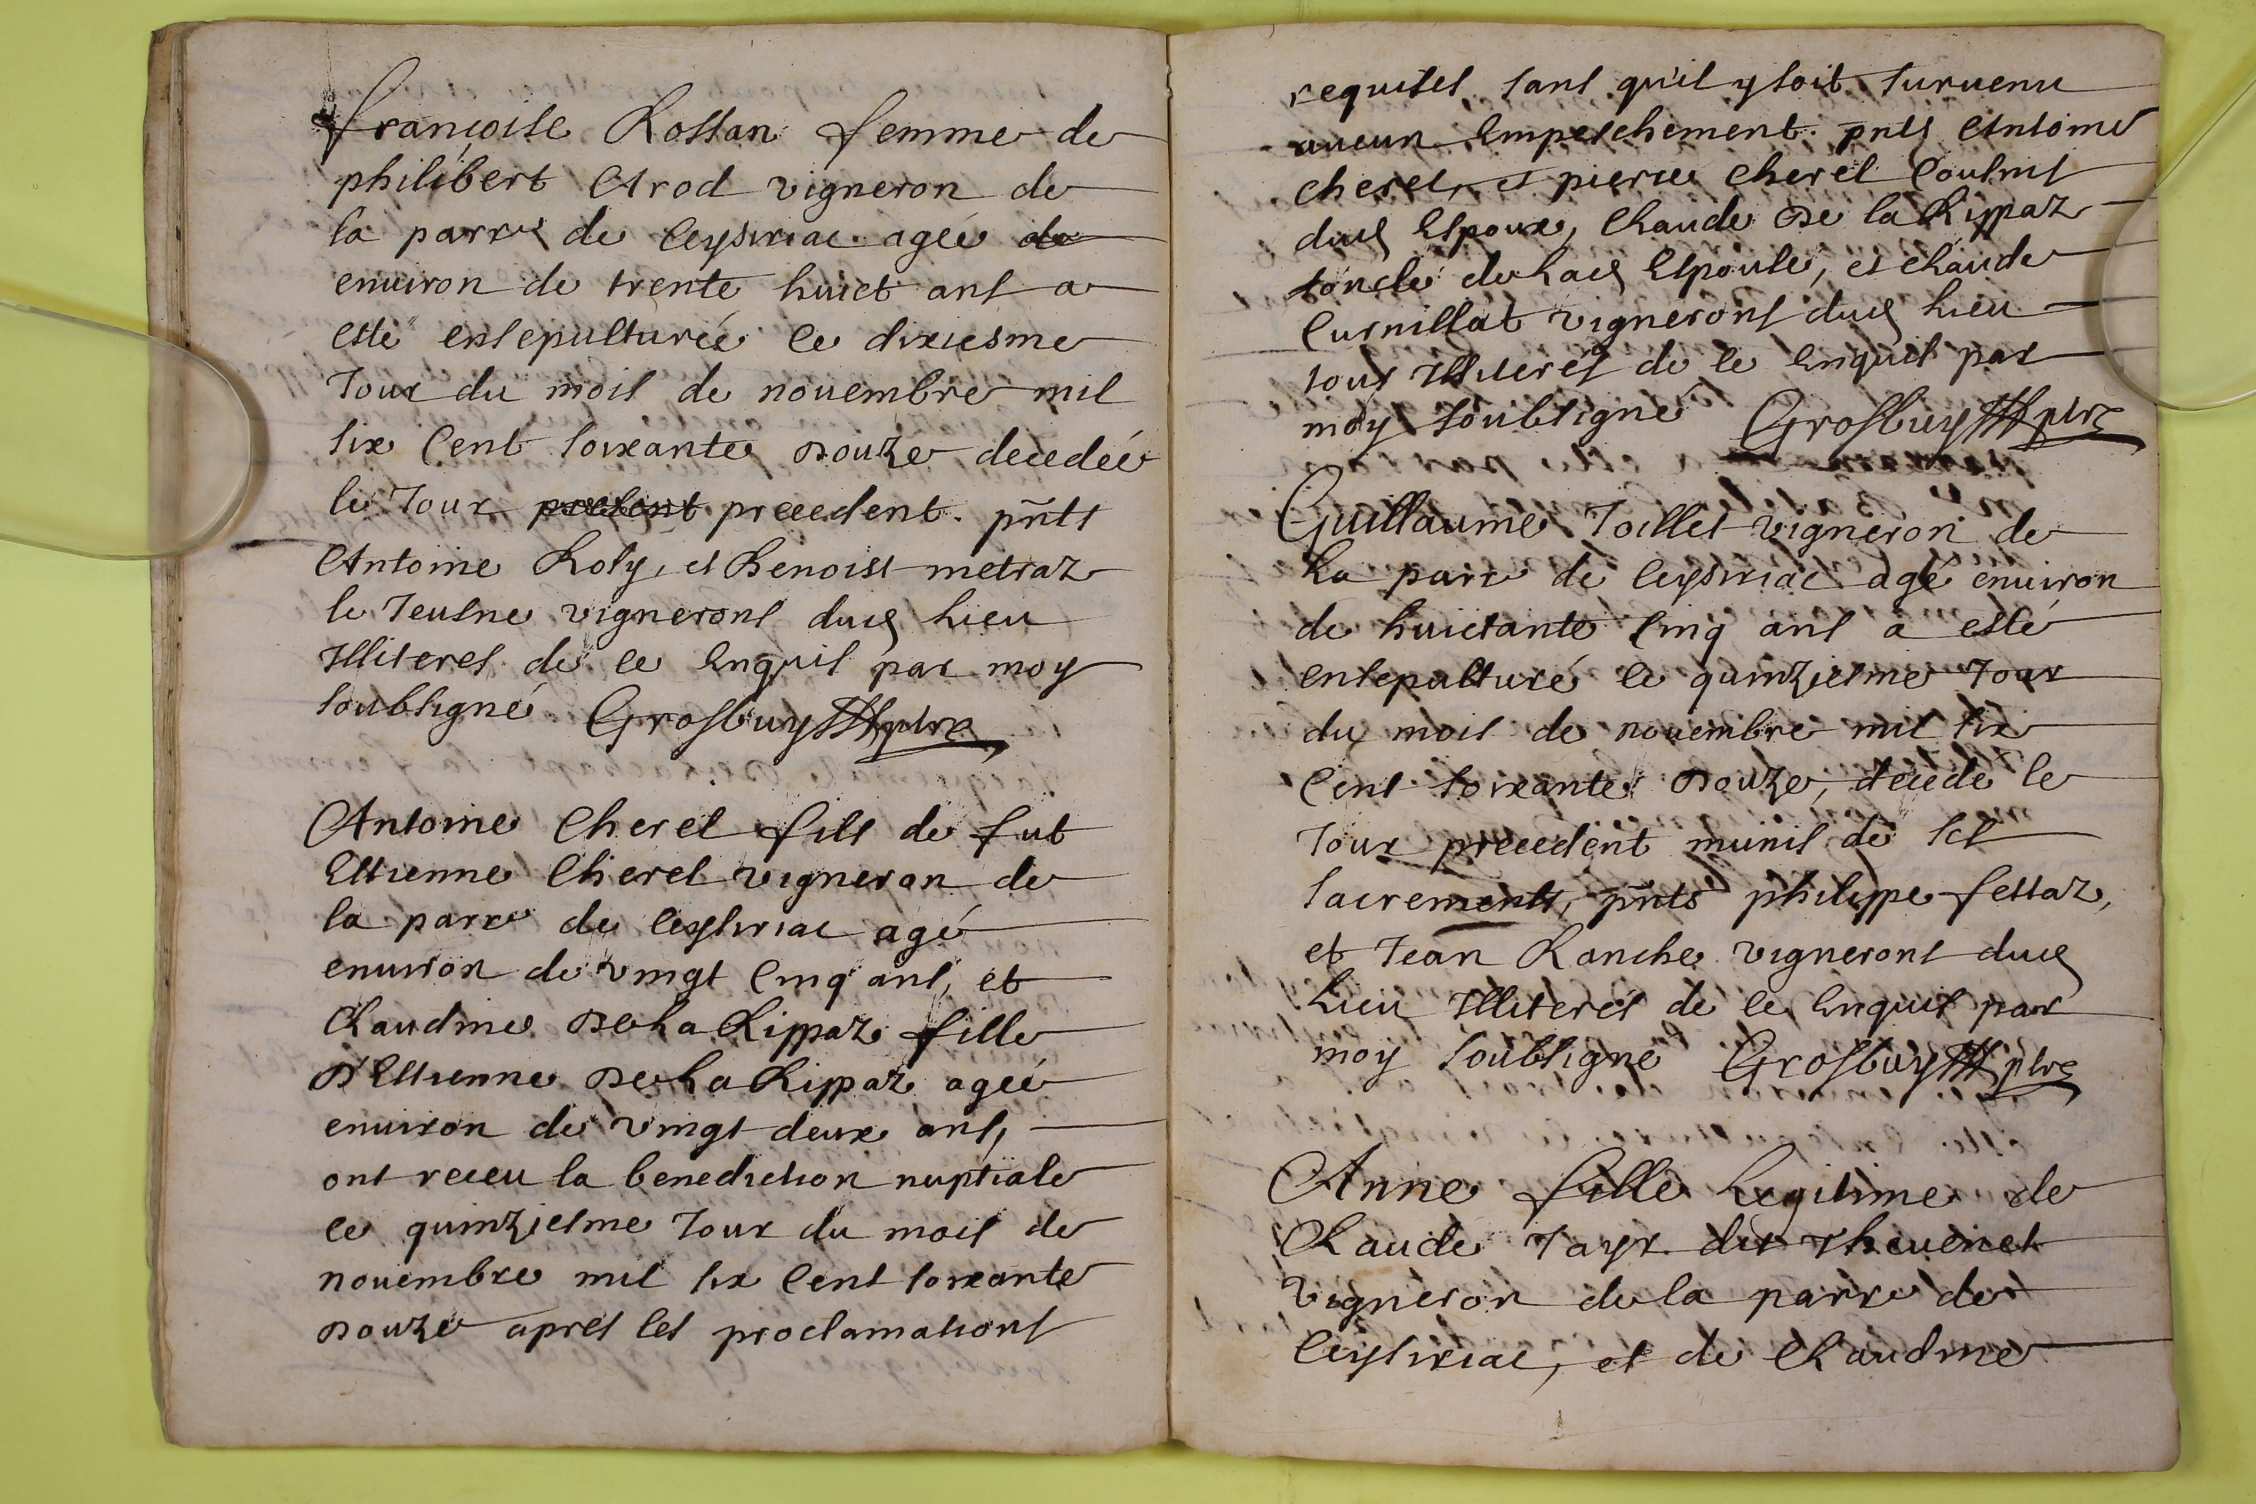 françoise Rossan femme de
philibert Arod vigneron de
la parre de Ceysiriac agée de
enuiron de trente huict ans a
esté ensepulturée ce dixiesme
Jour du mois de nouembre mil
six Cent soixante douze decedée
le Jour present precedent. pñts
Antoine Roly, et Benoist metraz
le Jeusne vignerons dud lieu
Illiteres de ce Enquis par moy
soubsigné Grosbuy pbre
Antoine Cherel fils de fut
Estienne Cherel vigneron de
la parre de Ceysiriac agé
enuiron de vingt Cinq ans, et
Claudine De La Rippaz fille
D'Estienne De La Rippaz agée
enuiron de vingt deux ans,
ont receu la benediction nuptiale
ce quinziesme Jour du mois de
nouembre mil six Cent soixante
douze apres les proclamations
requises sans qu'il y soit suruenu
aucun Empeschement. pñts Antoine
Cherel, et pierre Cherel Cousins
dud Espoux, Claude De la Rippaz
toncle de Lad Espouse, et Claude
Curnillat vignerons dud Lieu
tous Illiteres de ce Enquis par
moy soubsigné Grosbuy pbre
Guillaume Joillet vigneron de
La parre de Ceysiriac agé enuiron
de huictante Cinq ans a esté
ensepulturé ce quinziesme Jour
du mois de nouembre mil six
Cent soixante douze, decede le
Jour precedent munis de ses
sacrements, pñts philippe fettaz,
et Jean Ranche vignerons dud
Lieu Illiteres de ce Enquis par
moy soubsigné Grosbuy pbre
Anne fille Legitime de
Claude Jayr dit Theuenet
vigneron de la parre de
Ceysiriac, et de Claudine